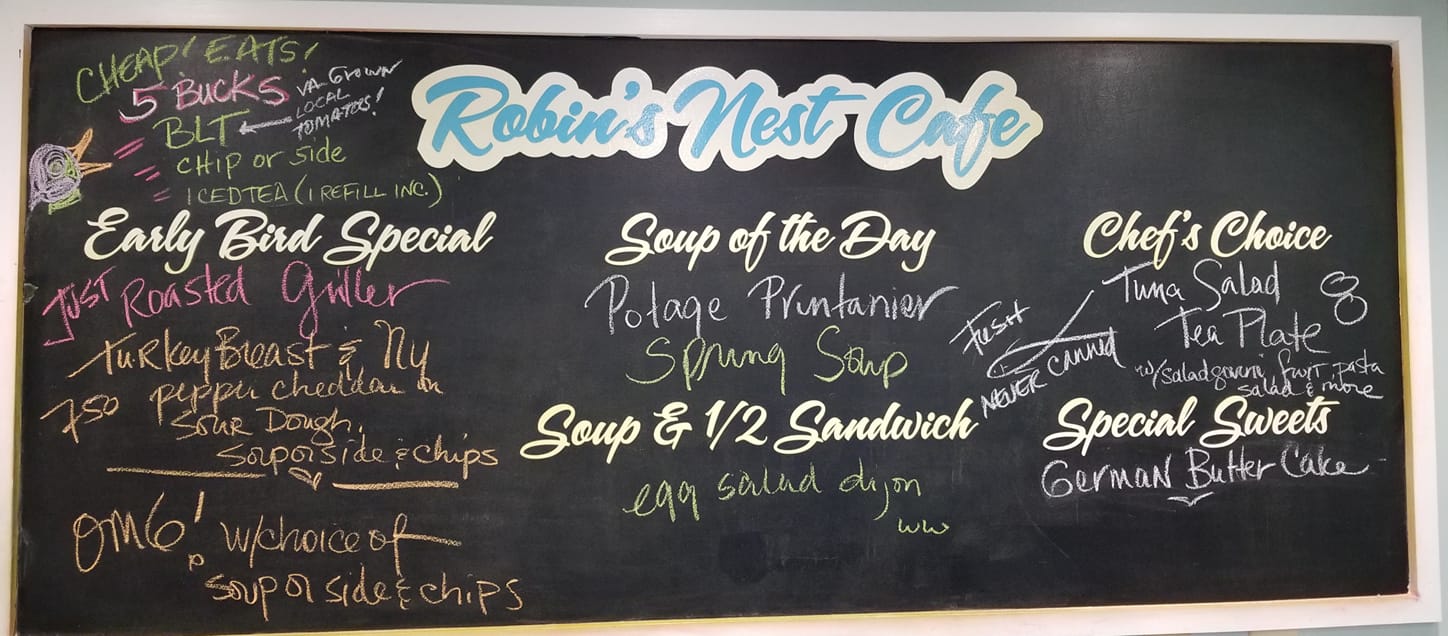 CHEAP! EATS!
5 BUCKS
BLT
VA GROWN
LOCAL
TOMATOES!
CHIP or side
ICED TEA (1 REFILL INC.)
Robin's Nest Cafe
Early Bird Special
JUST Roasted Griller
Turkey Breast & NY
pepper cheddar on
750
Sour Dough,
soup or side & chips
OMG! w/choice of
soup or side & chips
Soup of the Day
Potage Printanier
Spring Soup
Soup & 1/2 Sandwich
egg salad dijon
ww
Chef's Choice
Tuna Salad
8
Tea Plate
FRESH
NEVER CANNED
w/salad greens, fruit, pasta
salad & more
Special Sweets
German Butter Cake